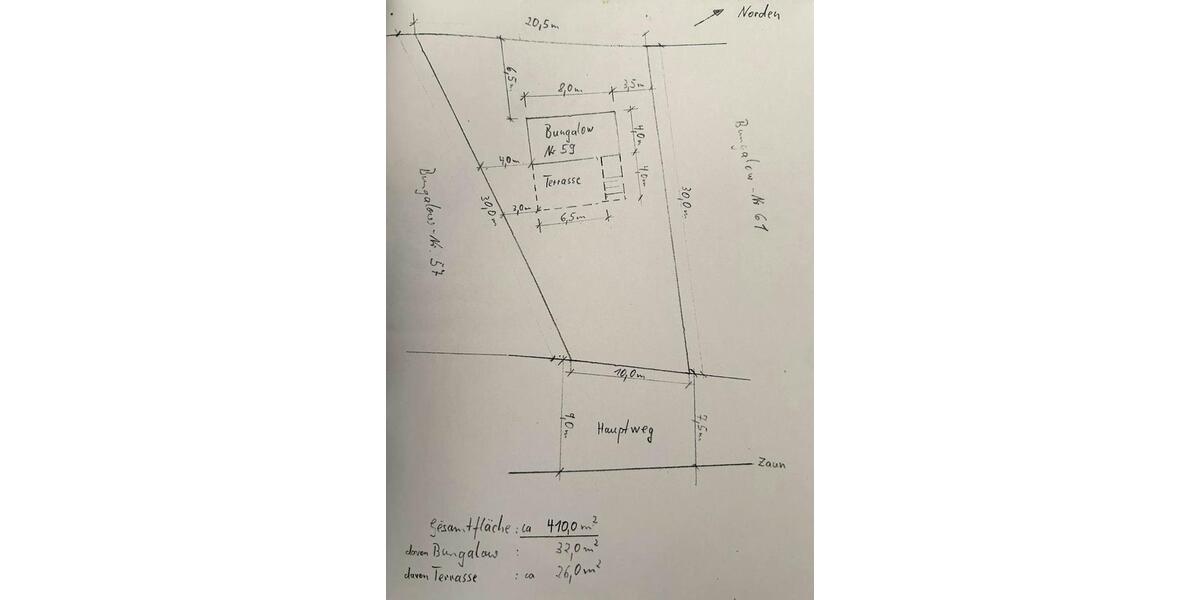 Norden
20,5m
6,5m
8,0m
3,5m
Bungalow
Nr 59
4,0m
4,0m
Terrasse
4,0m
3,0m
6,5m
30,0m
30,0m
Bungalow-Nr. 57
Bungalow-Nr 61
10,0m
9,0m
Hauptweg
7,5m
Zaun
Gesamtfläche : ca 410,0 m²
davon Bungalow : 32,0 m²
davon Terrasse : ca 26,0 m²